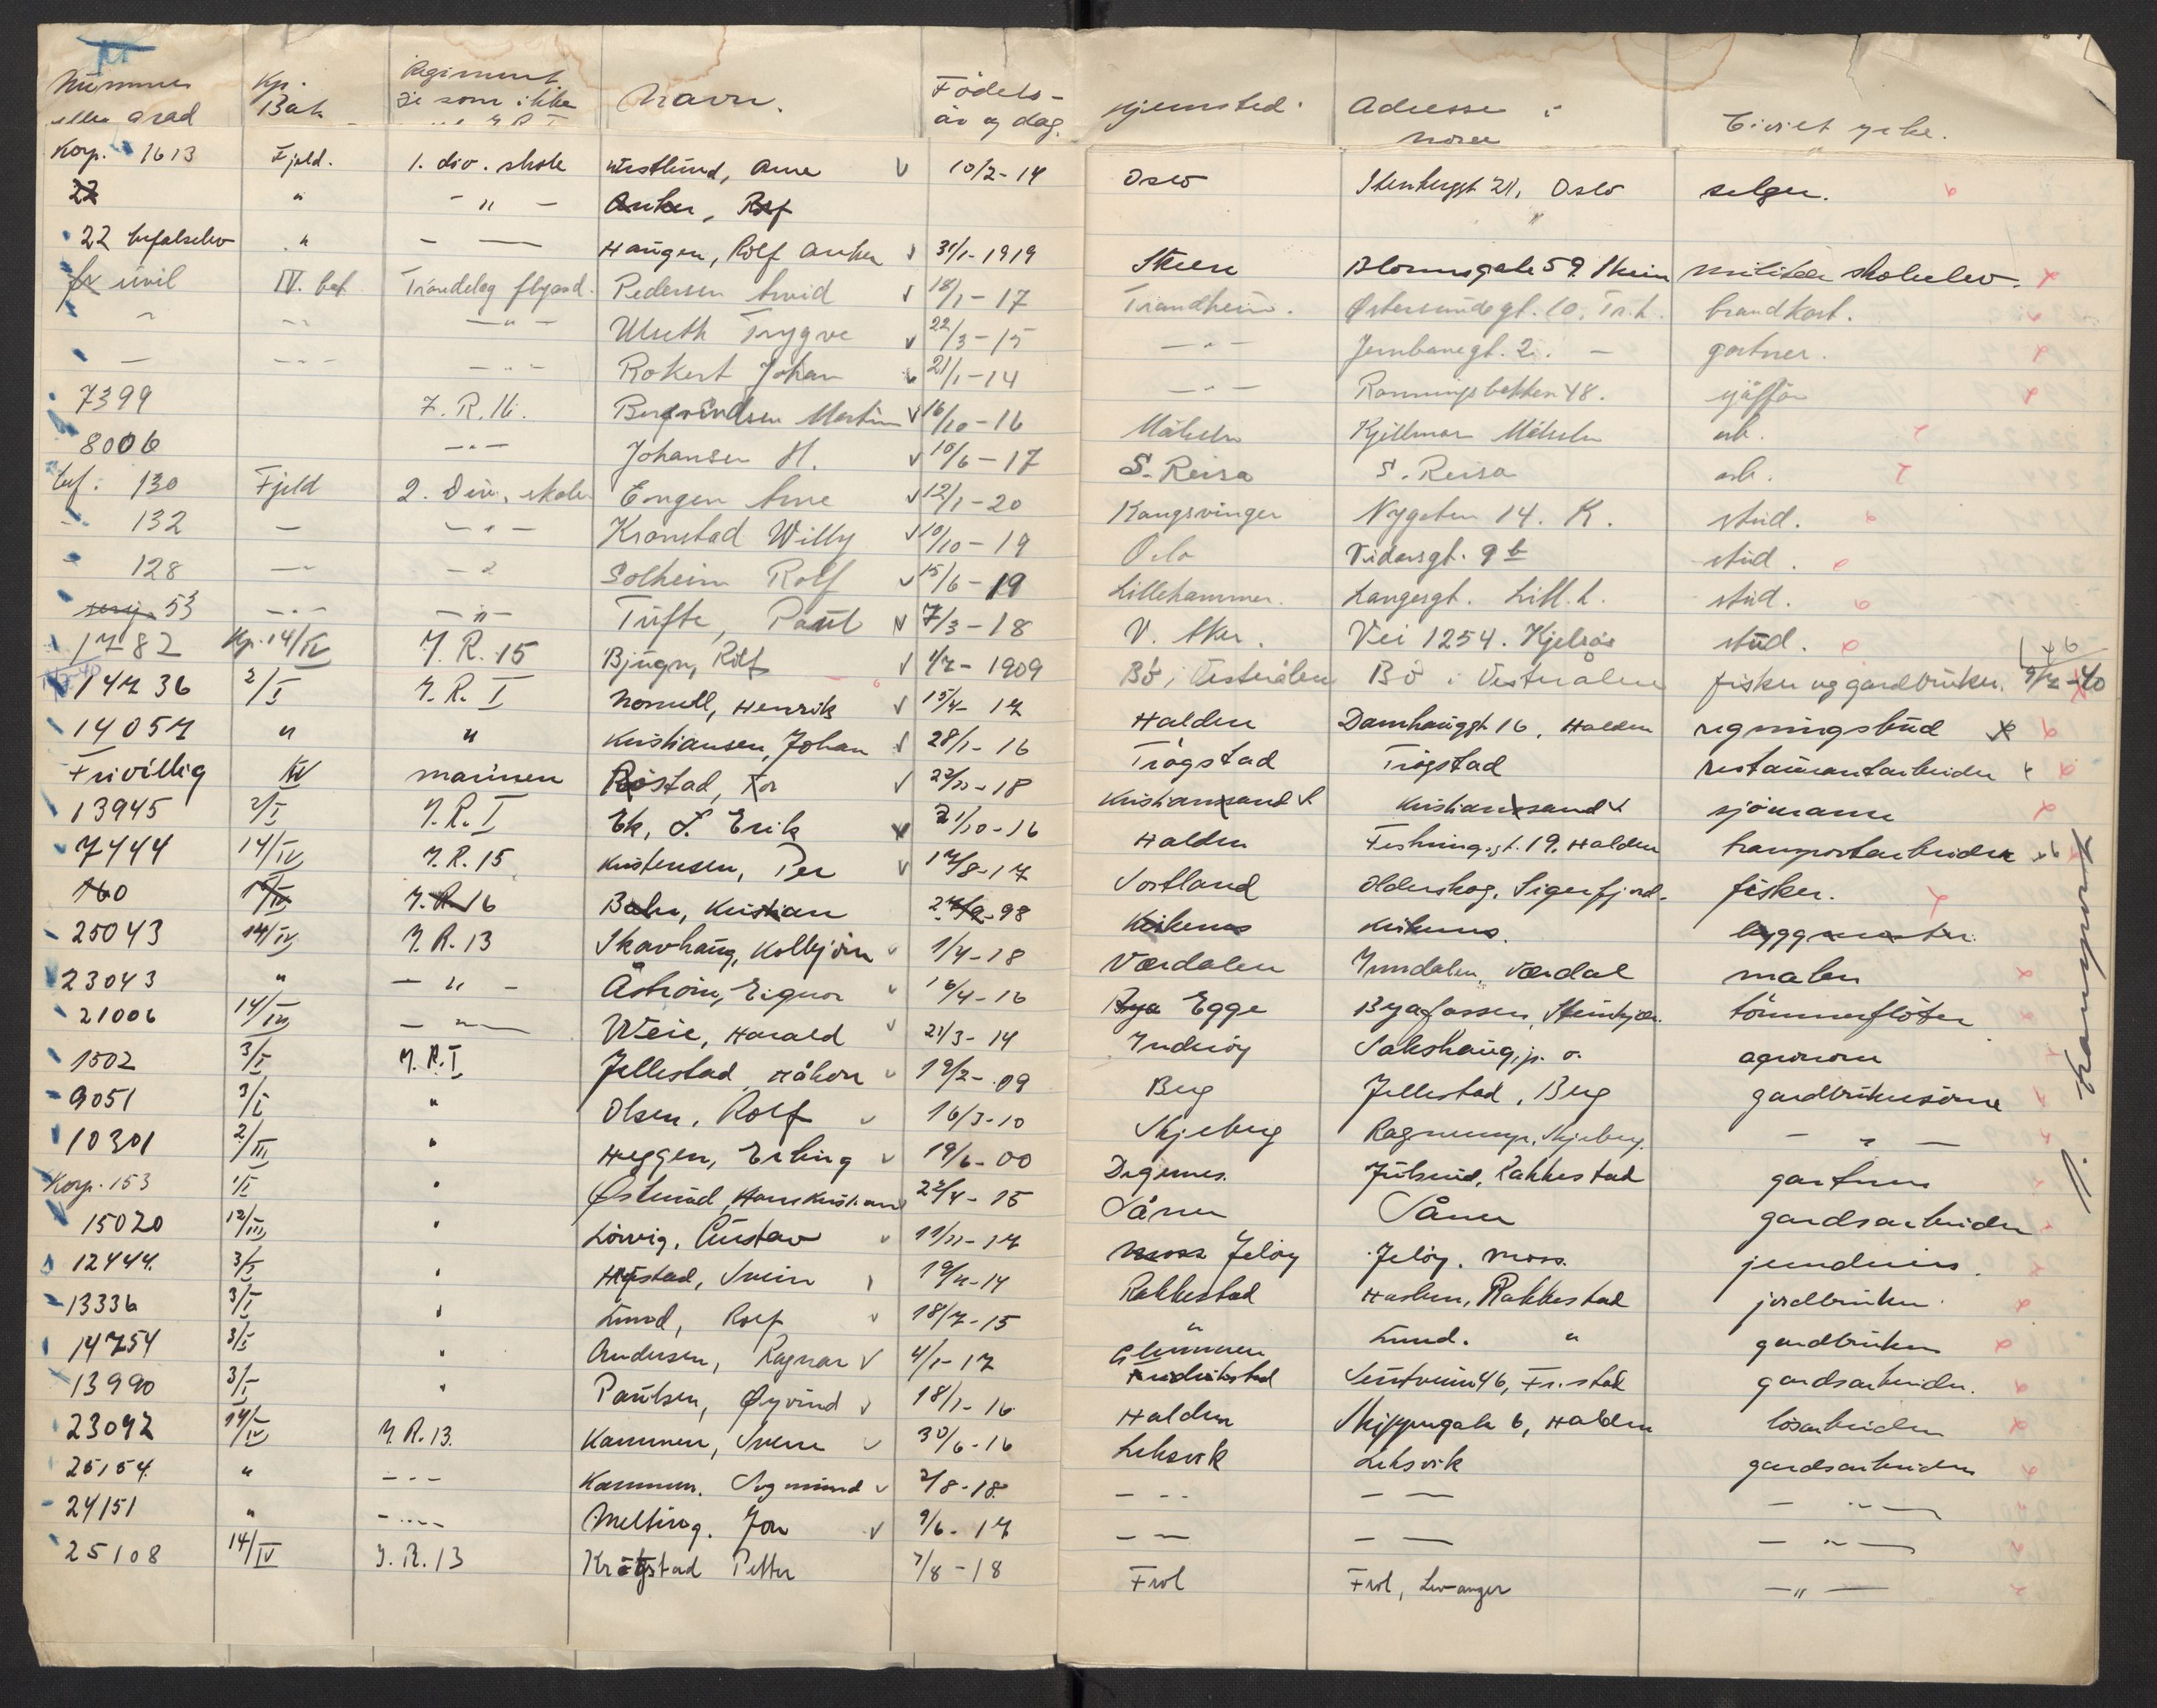 Nummer eller grad | Kp. Bat. | Regiment de som ikke | Navn. | Födels- år og dag. | Hjemsted. | Adresse i | Civilt yrke.
Korp. 1613 | Fjeld. | 1. div. skole | Westlund, Arne v | 10/2-14 | Oslo | Stenberggt 21, Oslo | selger.
22 | " | - " - | Anker, Rolf | "
22 befalselev | " | - — | Haugen, Rolf Anker v | 31/1-1919 | Skien | Blomsgate 59. Skien | militær skoleelev.
sivil | IV. bat. | Trøndelag flyavd. | Pedersen Arvid v | 18/1-17 | Trondheim. | Østersundsgt. 10. Tr.h. | brandkonst.
" | - " - | - " - | Wuth Trygve v | 22/3-15 | - " - | Jernbanegt. 2. - | gartner.
— | - " - | - " - | Rokert Johan v | 21/1-14 | - " - | Rønningsbakken 48. | sjåffør
7399 | I.R. 16. | Martin v | 16/10-16 | Kjillmar | arb.
8006 | - " - | Johansen H. v | 10/6-17 | S. Reisa | S. Reisa | arb.
bef. 130 | Fjeld | 2. Div. skole | Engen Arne v | 12/1-20 | Kongsvinger | Nygaten 14. K. | stud.
- 132 | — | - " - | Kronstad Willy v | 10/10-19 | Oslo | Vidarsgt. 9 b | stud.
" 128 | — | - " - | Solheim Rolf v | 15/6-19 | Lillehammer. | Langesgt. Lill.h. | stud.
53 | - " - | - " - | Tufte, Paul v | 7/3-18 | V. Aker. | Vei 1254. Kjelsås | stud.
1782 | Kp. 14/IV | I.R. 15 | Bjugn, Rolf v | 1/7-1909 | Bö i Vesterålen | Bö i Vesterålen | fisker og gardbruker. 9/7-40
14736 | 2/I | I.R. I | Norvell, Henrik v | 15/4-17 | Halden | Damhauggt 16, Halden | regningsbud
14057 | " | " | Kristiansen, Johan v | 28/1-16 | Trögstad | Trögstad | restaurantarbeider
Frivillig | IV | marinen | Röstad, Tor v | 22/11-18 | Kristiansand S | Kristiansand S | sjömann
13945 | 2/I | I.R. I | Ek, S. Erik v | 21/10-16 | Halden | Festningsgt. 19. Halden | transportarbeider
7444 | 14/IV | I.R. 15 | Kristensen, Per v | 17/8-17 | Sortland | Olderskog, Sigerfjord. | fisker.
160 | 14/IV | I.R. 16 | Bahr, Kristian | 27/9-98 | Kirkenes | Kirkenes. | byggmester.
25043 | 14/IV | I.R. 13 | Skavhaug, Kolbjörn v | 1/4-18 | Værdalen | Inndalen, Værdal | maler
23043 | " | - " - | Åström, Eignor v | 16/4-16 | Bya Egge | Byafossen, Steinkjær. | tömmerflöter
21006 | 14/IV | - " — | Weie, Harald v | 21/3-14 | Inderöy | Sakshaug, p. o. | agronom
1502 | 3/I | I.R. I | Jellestad, Håkon v | 19/2-09 | Berg | Jellestad, Berg | gardbrukersönn
9051 | 3/I | " | Olsen, Rolf v | 16/3-10 | Skjeberg | Skjeberg. | - " -
10301 | 2/III | " | Heggen, Erling v | 19/6-00 | Degernes. | Rakkestad | gartner
Korp. 153 | 1/I | " | Østlund, Hans Kristian | 22/4-15 | Såner | Såner | gardsarbeider
15020 | 12/III | " | Lörvig, Gustav v | 11/11-17 | Moss Jelöy | Jelöy. Moss. | jerndreier.
12444. | 3/I | " | Hofstad, Svein v | 19/4-14 | Rakkestad | Haslem, Rakkestad | jordbruker.
13336 | 3/I | " | Lund, Rolf v | 18/7-15 | " | Lund. " | gardbruker
14754 | 3/I | " | Andersen, Ragnar v | 4/1-17 | Glemmen Fredrikstad | 46, Fr.stad | gardsarbeider.
13990 | 3/I | " | Paulsen, Øyvind v | 18/1-16 | Halden | Skippergate 6, Halden | lösarbeider
23092 | 14/IV | I.R. 13. | Kammen, Sverre v | 30/6-16 | Leksvik | Leksvik | gardsarbeider
25154. | " | - " - | Kammen. Sigmund v | 2/8-18. | - " - | - — | - " —
24151 | " | - " - | Melting. Jon v | 9/6-17 | - — | - — | - " —
25108 | 14/IV | I.R. 13 | Krogstad Petter | 7/8-18 | Frol | Frol, Levanger | - " —